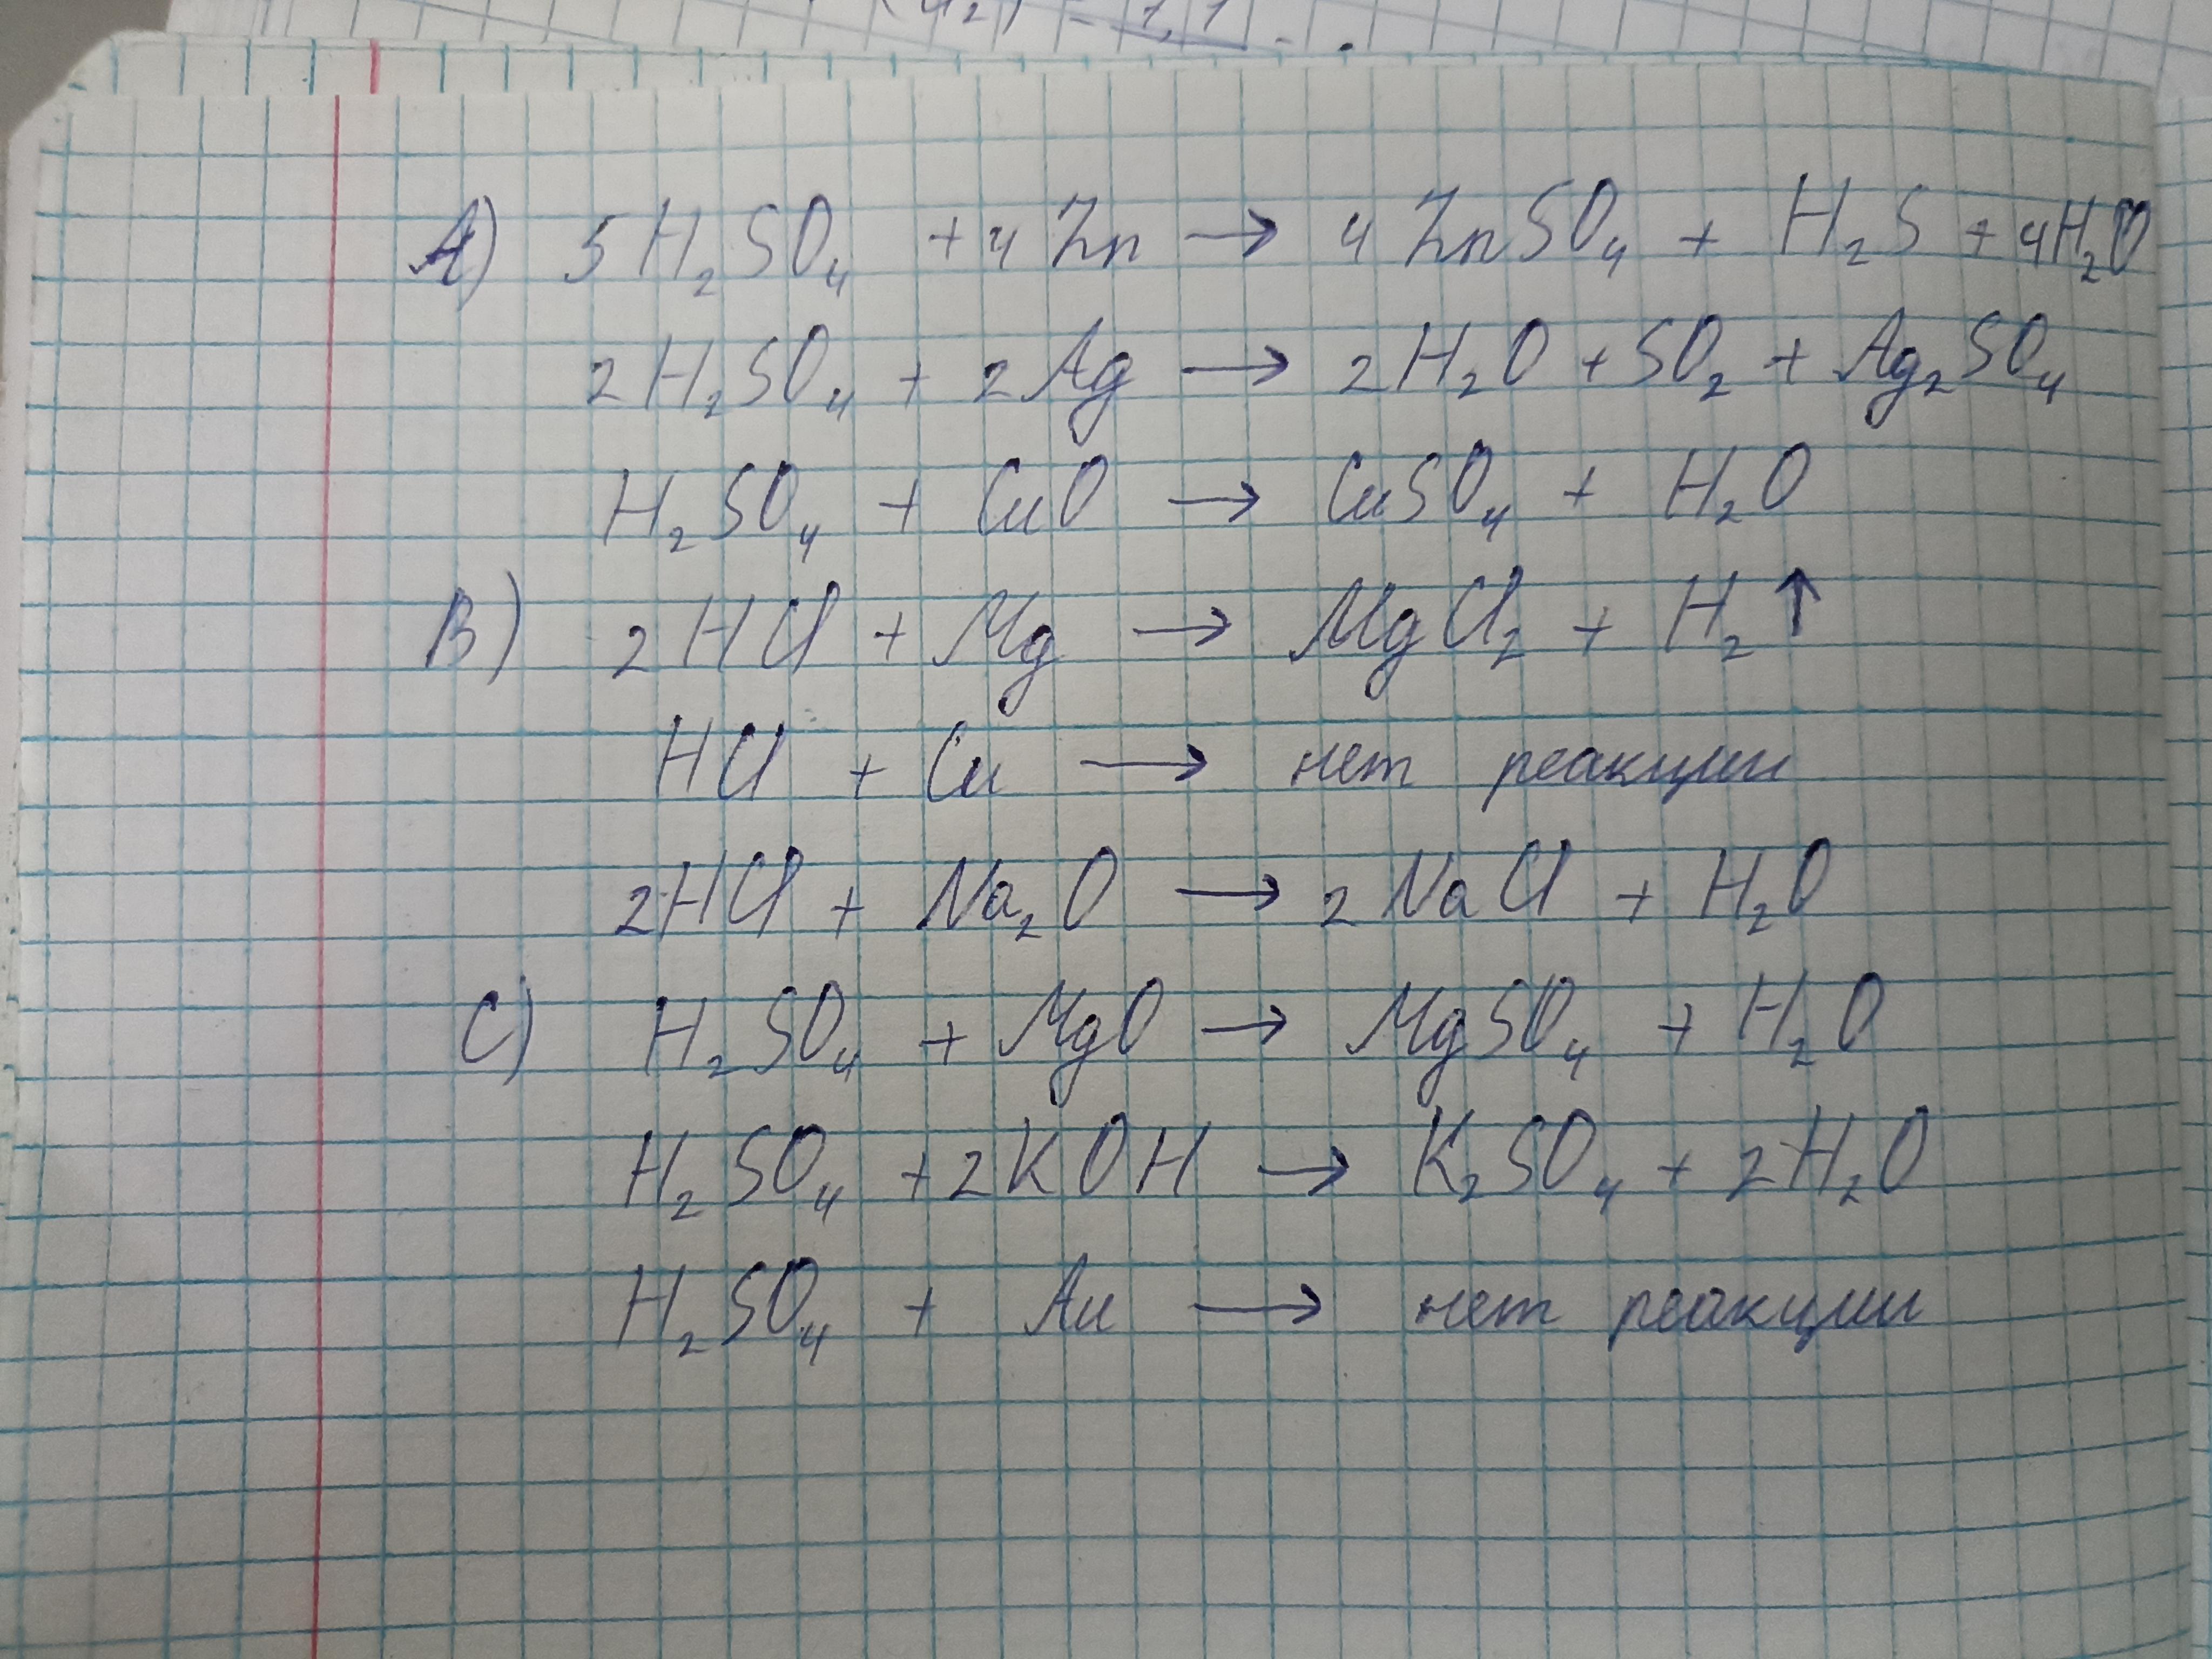 A) 5 H₂SO₄ + 4 Zn → 4 ZnSO₄ + H₂S + 4H₂O
2H₂SO₄ + 2Ag → 2H₂O + SO₂ + Ag₂SO₄
H₂SO₄ + CuO → CuSO₄ + H₂O
B) 2HCl + Mg → MgCl₂ + H₂↑
HCl + Cu → нет реакции
2HCl + Na₂O → 2NaCl + H₂O
C) H₂SO₄ + MgO → MgSO₄ + H₂O
H₂SO₄ + 2KOH → K₂SO₄ + 2H₂O
H₂SO₄ + Au → нет реакции